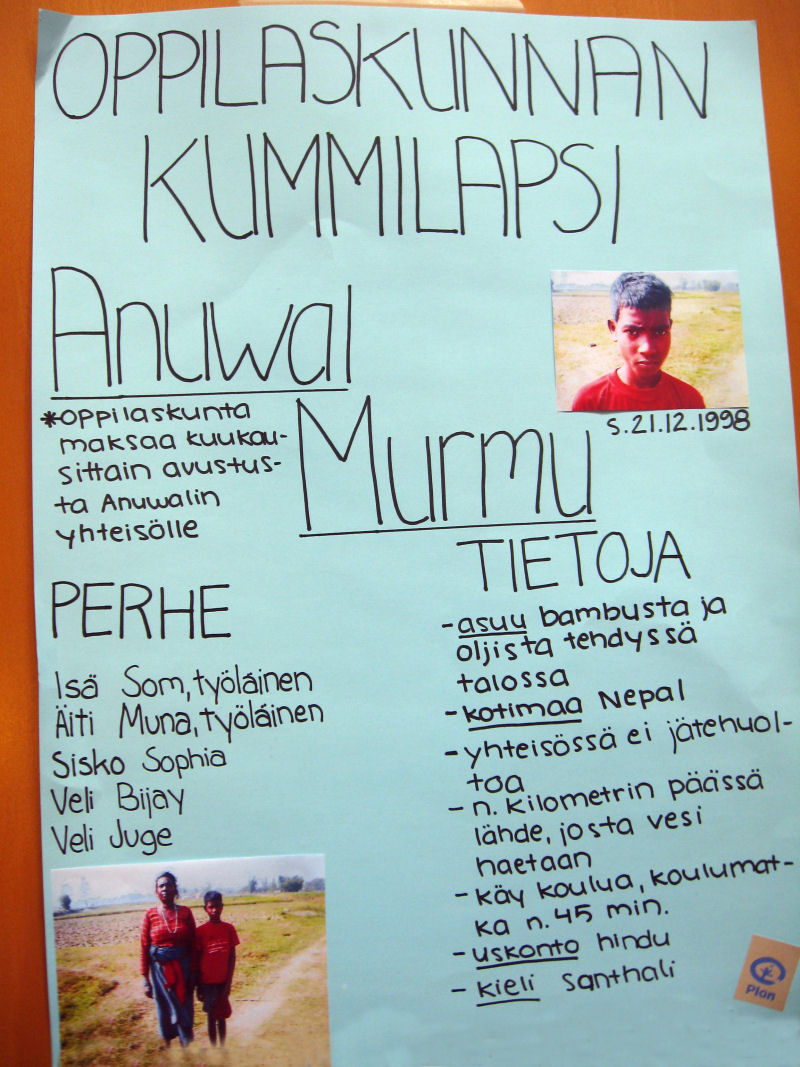 OPPILASKUNNAN
KUMMILAPSI
Anuwal
Murmu
s.21.12.1998
*oppilaskunta
maksaa kuukau-
sittain avustus-
ta Anuwalin
yhteisölle
PERHE
Isä Som, työläinen
Äiti Muna, työläinen
Sisko Sophia
Veli Bijay
Veli Juge
TIETOJA
- asuu bambusta ja
oljista tehdyssä
talossa
- kotimaa Nepal
- yhteisössä ei jätehuol-
toa
- n. kilometrin päässä
lähde, josta vesi
haetaan
- käy koulua, koulumat-
ka n. 45 min.
- uskonto hindu
- kieli santhali
Plan